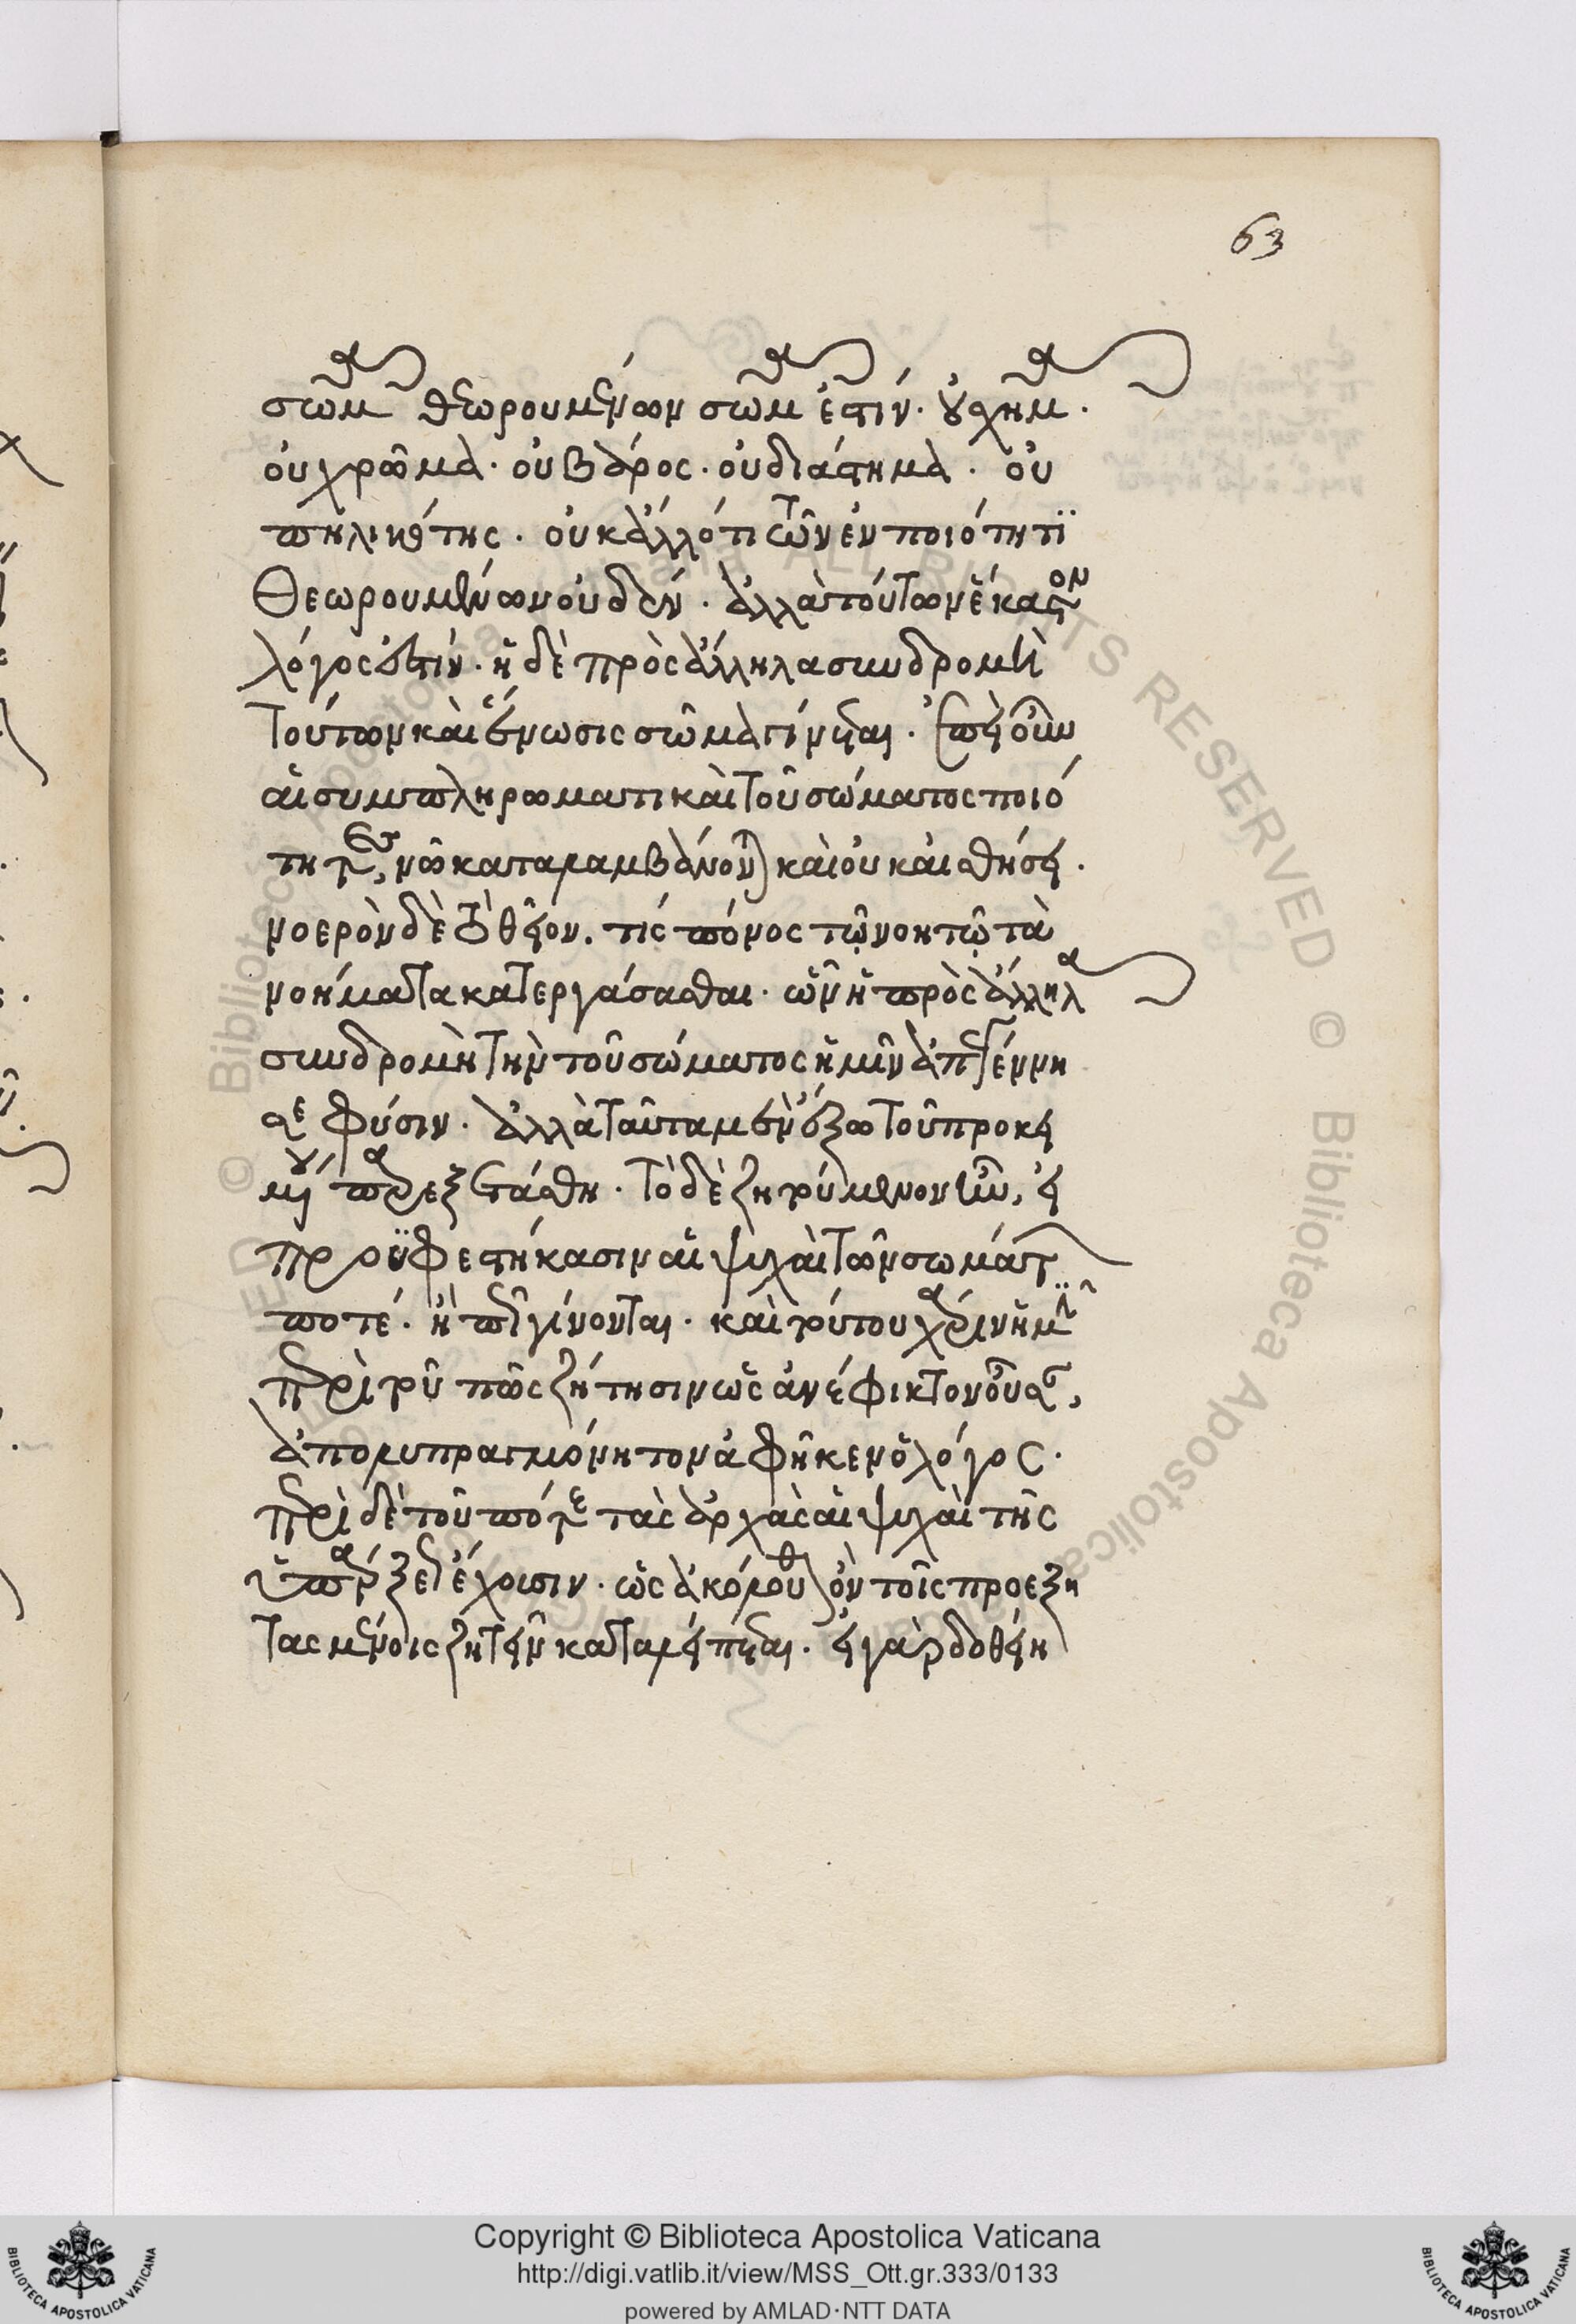 63
σῶμα θεωρουμένων σῶμα ἐστίν· οὐ σχῆμα·
οὐ χρῶμα· οὐ βάρος· οὐ διάστημα· οὐ
πηλικότης· οὐκ ἄλλό τι τῶν ἐν ποιότητϊ
Θεωρουμένων οὐδέν· ἀλλὰ τούτων ἕκαστον
λόγος ἐστίν· ἡ δὲ πρὸς ἄλληλα συνδρομὴ
τούτων καὶ ἕνωσις σῶμα γίνεται· ἐπεὶ οὖν
αἱ συμπληρωματικαὶ τοῦ σώματος ποιό
τητες, νῷ καταλαμβάνονται καὶ οὐκ αἰσθήσει·
νοερὸν δὲ τὸ θεῖον. τίς πόνος τῷ νοητῷ τὰ
νοήματα κατεργάσασθαι· ὧν ἡ πρὸς ἄλληλα
συνδρομὴ τὴν τοῦ σώματος ἡμῖν ἀπεγέννη
σε φύσιν· ἀλλὰ ταῦτα μὲν ἔξω τοῦ προκει
μένου παρεξετάσθη· Τὸ δὲ ζητούμενον ἦν, εἰ
προϋφεστήκασιν αἱ ψυχαὶ τῶν σωμάτων
ποτέ· ἢ πῶς γίνονται· καὶ τούτου χάριν ἡμῖν
περὶ τοῦ πῶς ζήτησιν ὡς ἀνέφικτον οὖσαν,
ἀπολυπραγμόνητον ἀφῆκεν ὁ λόγος·
περὶ δὲ τοῦ πότε τὰς ἀρχὰς αἱ ψυχαὶ τῆς
ὑπάρξεως ἔχουσιν· ὡς ἀκόλουθον ὂν τοῖς προεξη
τασμένοις ζητεῖν καταλείπεται· εἰ γὰρ δοθείη
Copyright © Biblioteca Apostolica Vaticana
http://digi.vatlib.it/view/MSS_Ott.gr.333/0133
powered by AMLAD·NTT DATA